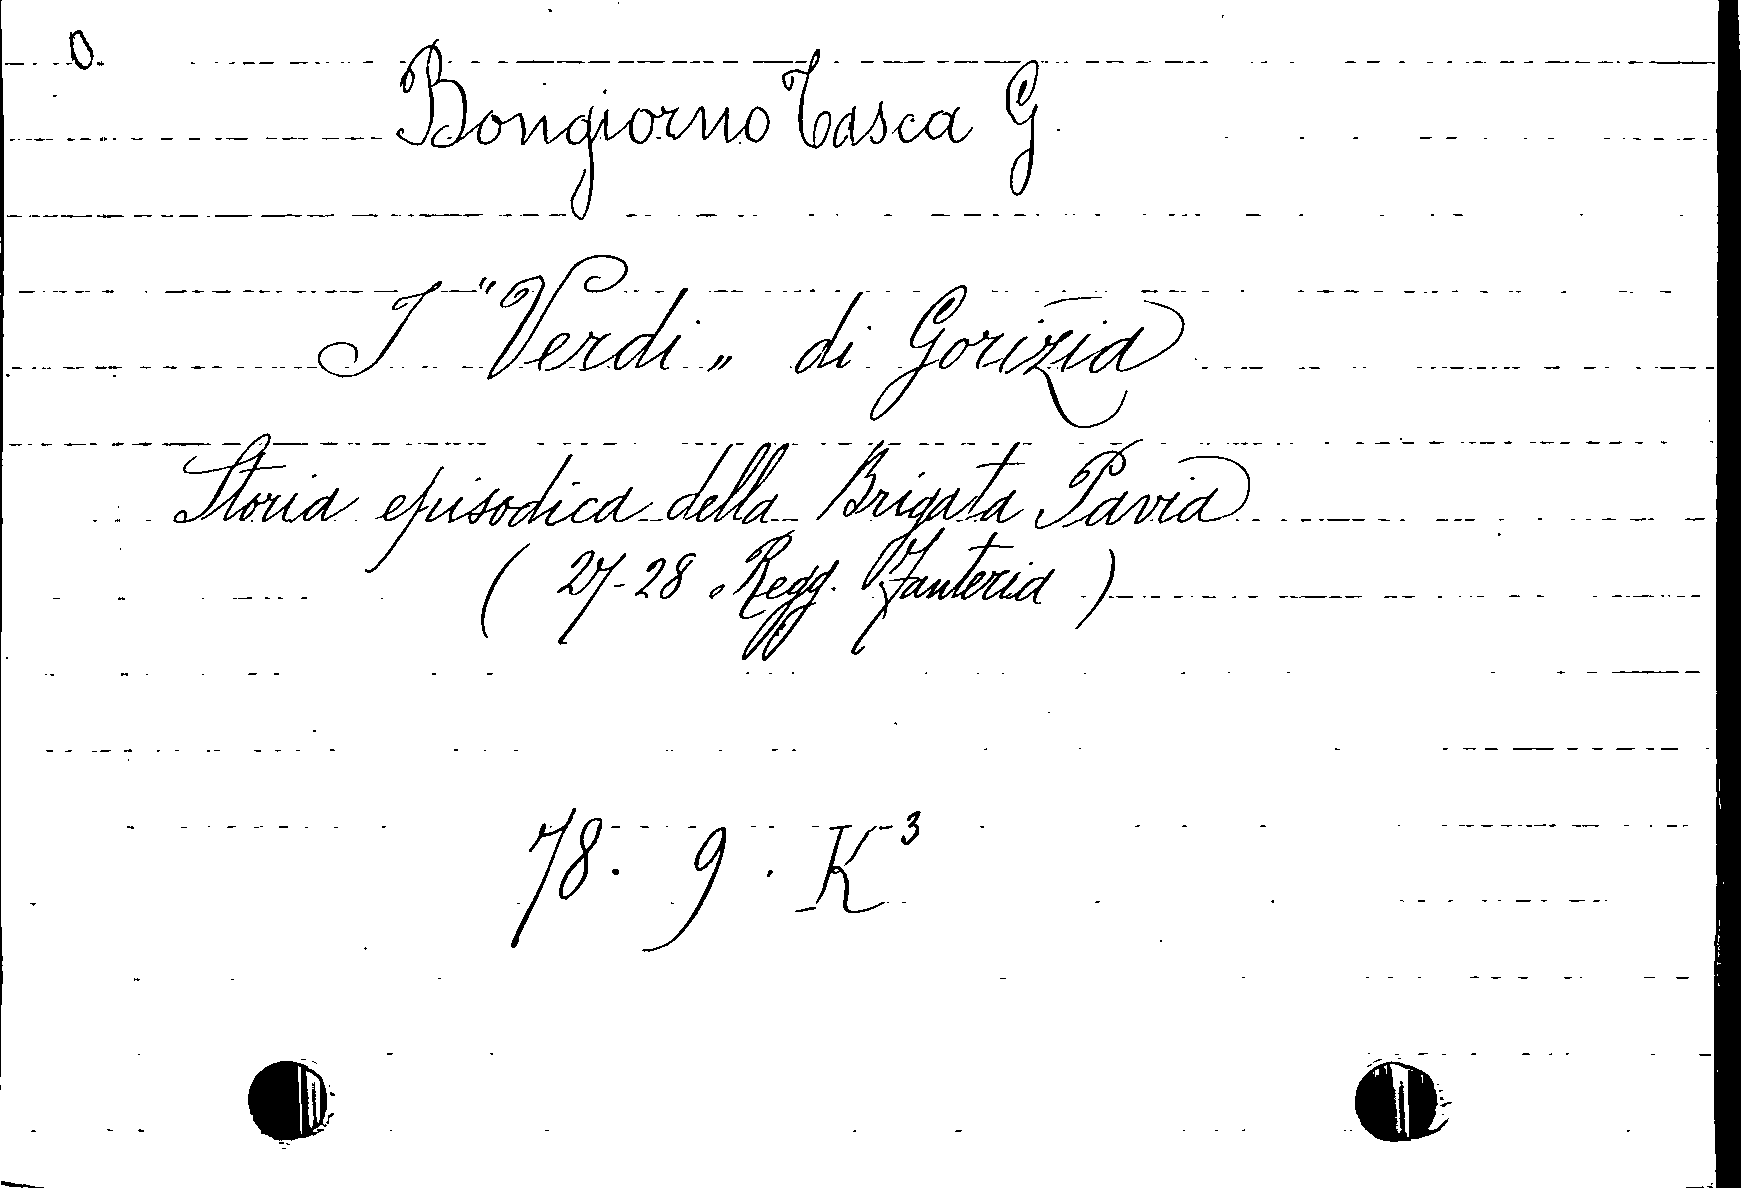 O.
Bongiorno Tasca G.
I "Verdi„ di Gorizia
Storia episodica della Brigata Pavia
( 27-28. Regg. Fanteria )
78. 9. K³